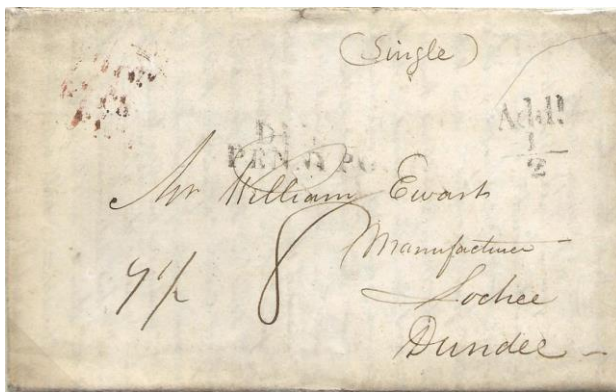 (Single)
Addl
1
2
PENNY PO
Mr William Ewart
Manufacturer
Lochee
Dundee
7 1/2
8